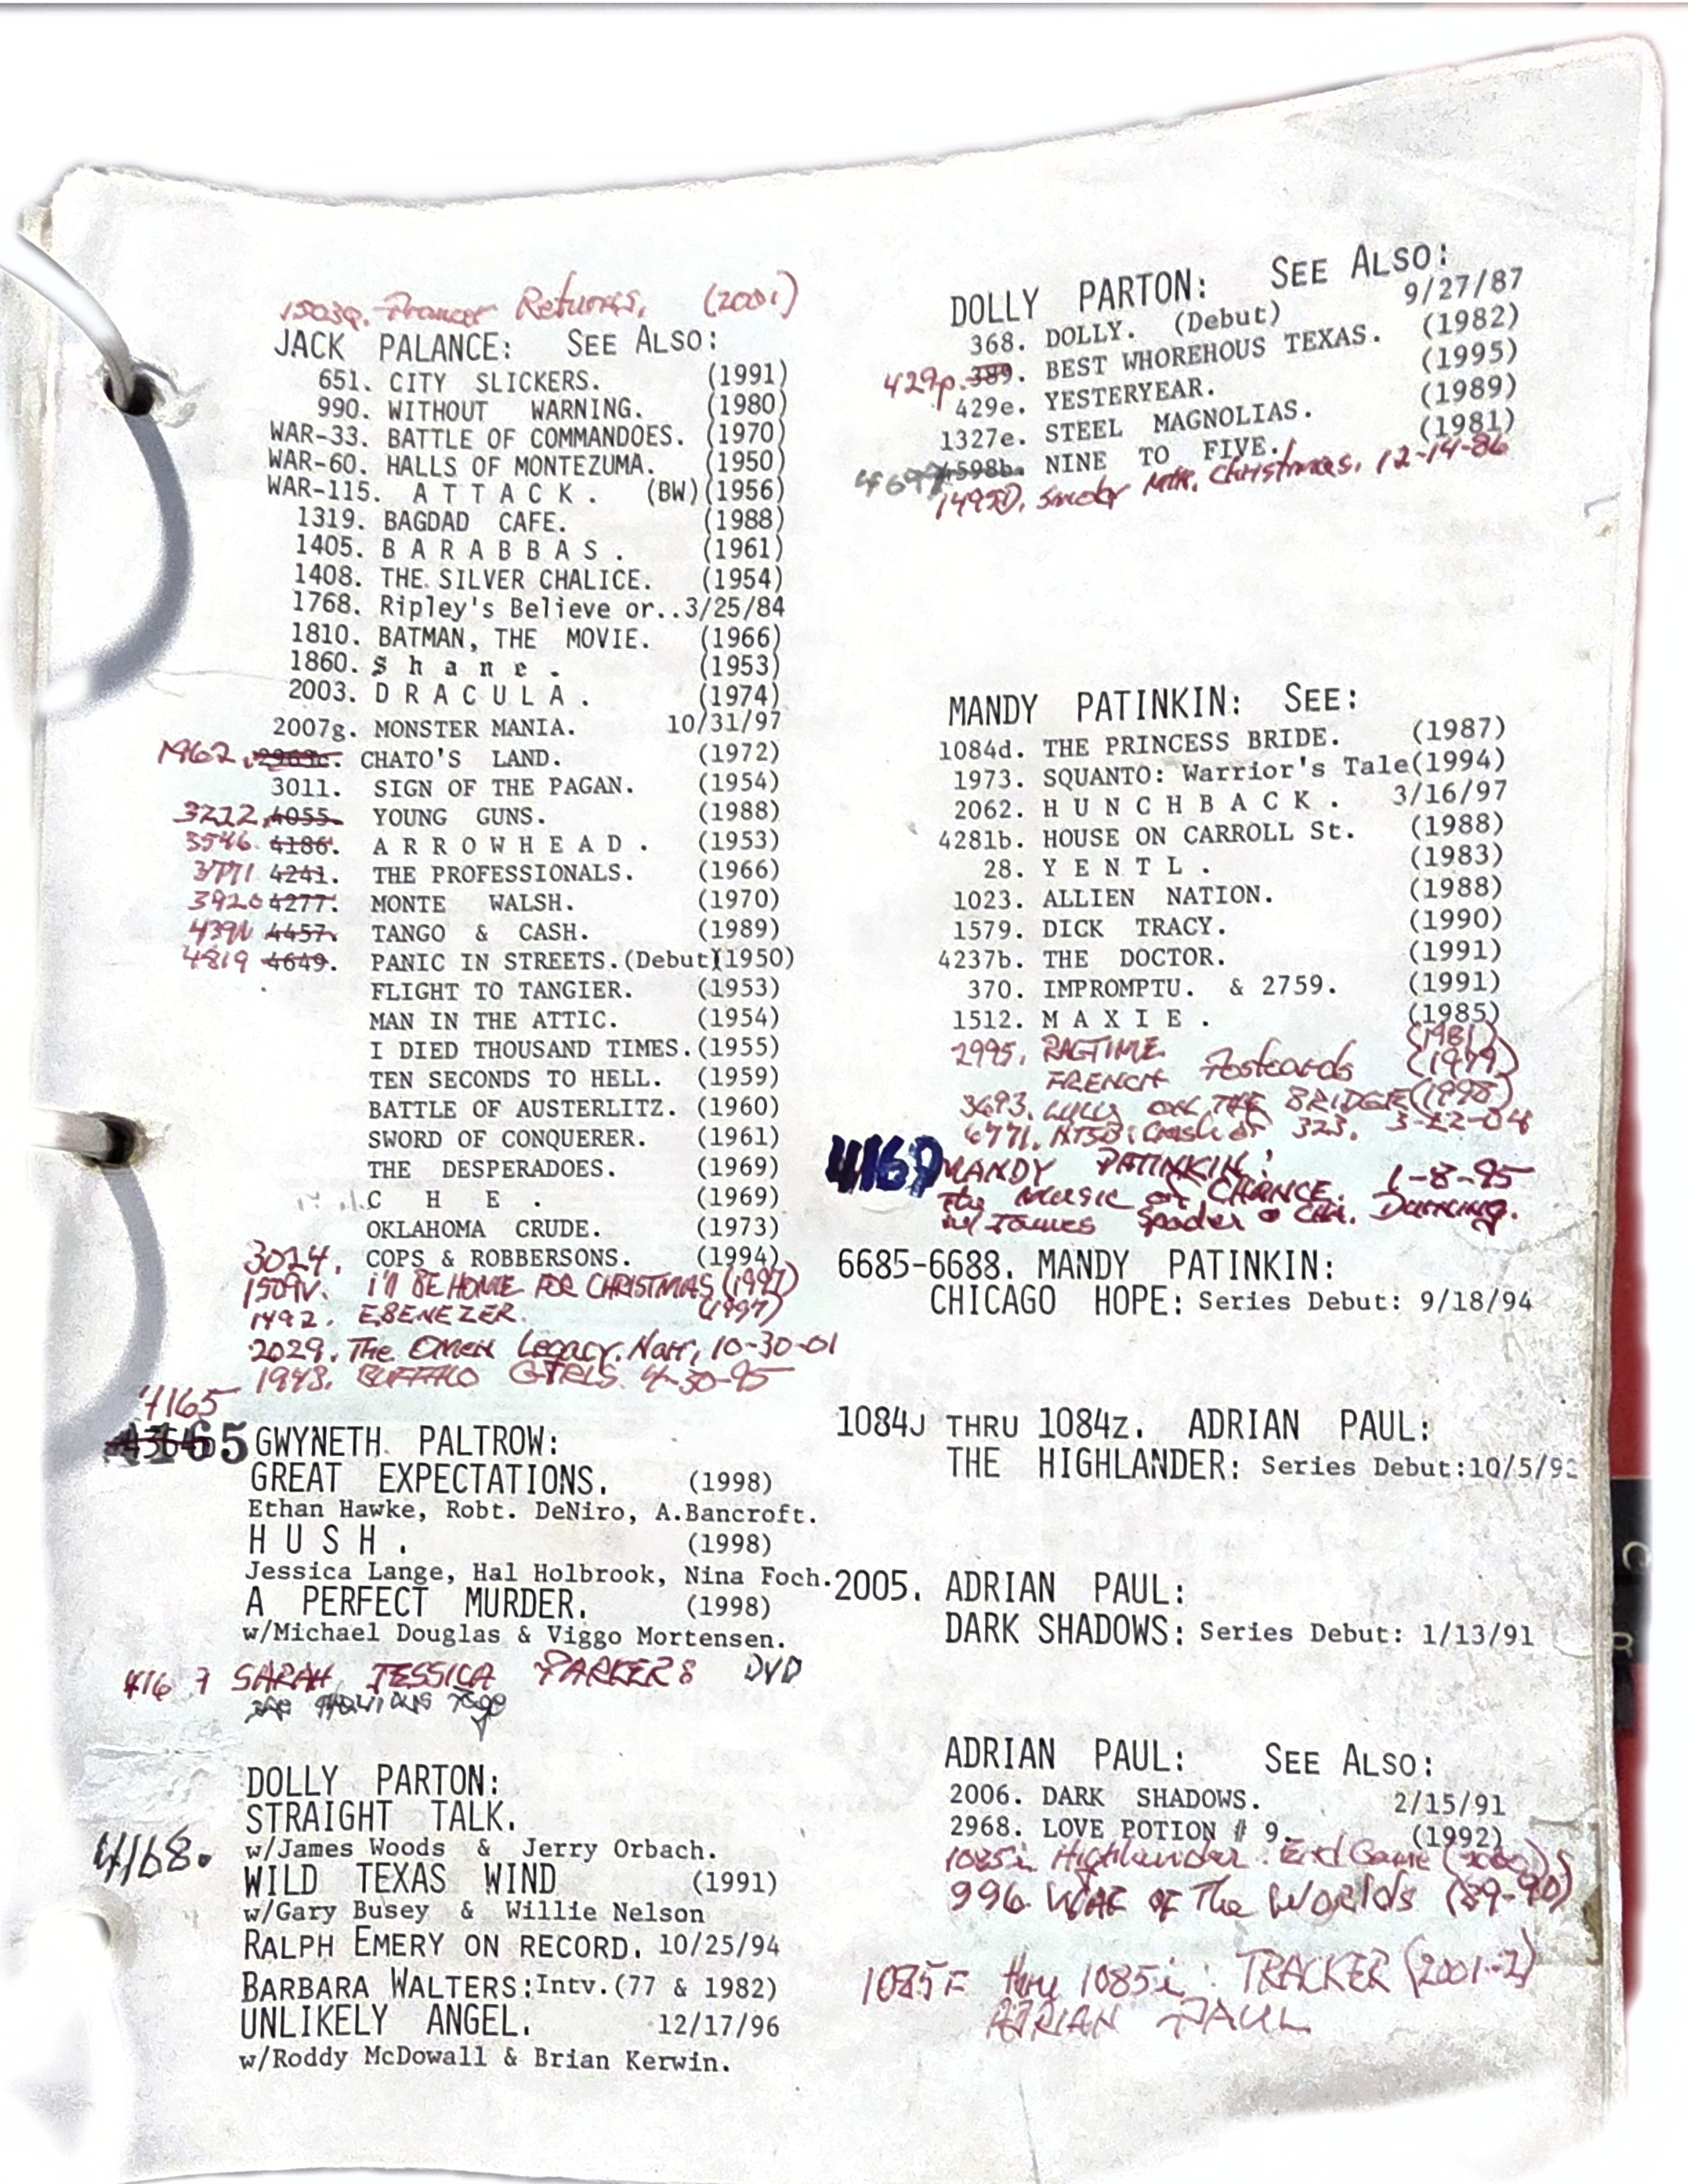 1503q. Prancer Returns. (2001)
JACK PALANCE: SEE ALSO:
651. CITY SLICKERS. (1991)
990. WITHOUT WARNING. (1980)
WAR-33. BATTLE OF COMMANDOES. (1970)
WAR-60. HALLS OF MONTEZUMA. (1950)
WAR-115. A T T A C K . (BW)(1956)
1319. BAGDAD CAFE. (1988)
1405. B A R A B B A S . (1961)
1408. THE SILVER CHALICE. (1954)
1768. Ripley's Believe or..3/25/84
1810. BATMAN, THE MOVIE. (1966)
1860. S h a n e . (1953)
2003. D R A C U L A . (1974)
2007g. MONSTER MANIA. 10/31/97
1962. CHATO'S LAND. (1972)
3011. SIGN OF THE PAGAN. (1954)
3222 4055. YOUNG GUNS. (1988)
3546 4186. A R R O W H E A D . (1953)
3771 4241. THE PROFESSIONALS. (1966)
3920 4277. MONTE WALSH. (1970)
439N 4457. TANGO & CASH. (1989)
4819 4649. PANIC IN STREETS.(Debut)(1950)
FLIGHT TO TANGIER. (1953)
MAN IN THE ATTIC. (1954)
I DIED THOUSAND TIMES.(1955)
TEN SECONDS TO HELL. (1959)
BATTLE OF AUSTERLITZ. (1960)
SWORD OF CONQUERER. (1961)
THE DESPERADOES. (1969)
C H E . (1969)
OKLAHOMA CRUDE. (1973)
3024. COPS & ROBBERSONS. (1994)
1509V. I'll BE HOME FOR CHRISTMAS (1997)
1492. EBENEZER. (1997)
2029. The Omen Legacy. Narr, 10-30-01
1943. BUFFALO GIRLS. 4-30-95
4165
65 GWYNETH PALTROW:
GREAT EXPECTATIONS. (1998)
Ethan Hawke, Robt. DeNiro, A.Bancroft.
H U S H . (1998)
Jessica Lange, Hal Holbrook, Nina Foch.
A PERFECT MURDER. (1998)
w/Michael Douglas & Viggo Mortensen.
4167 SARAH JESSICA PARKER: DVD
see previous Page
DOLLY PARTON:
STRAIGHT TALK.
4168. w/James Woods & Jerry Orbach.
WILD TEXAS WIND (1991)
w/Gary Busey & Willie Nelson
RALPH EMERY ON RECORD. 10/25/94
BARBARA WALTERS:Intv.(77 & 1982)
UNLIKELY ANGEL. 12/17/96
w/Roddy McDowall & Brian Kerwin.
DOLLY PARTON: SEE ALSO:
368. DOLLY. (Debut) 9/27/87
429p. 389. BEST WHOREHOUS TEXAS. (1982)
429e. YESTERYEAR. (1995)
1327e. STEEL MAGNOLIAS. (1989)
4598b. NINE TO FIVE. (1981)
1495D. Smoky Mtn. Christmas. 12-14-86
MANDY PATINKIN: SEE:
1084d. THE PRINCESS BRIDE. (1987)
1973. SQUANTO: Warrior's Tale(1994)
2062. H U N C H B A C K . 3/16/97
4281b. HOUSE ON CARROLL St. (1988)
28. Y E N T L . (1983)
1023. ALLIEN NATION. (1988)
1579. DICK TRACY. (1990)
4237b. THE DOCTOR. (1991)
370. IMPROMPTU. & 2759. (1991)
1512. M A X I E . (1985)
2995. RAGTIME. (1981)
FRENCH Postcards (1979)
3693. LULU ON THE BRIDGE(1998)
6771. NTSB: Crash of 323. 3-22-04
4169 MANDY PATINKIN: 1-8-95
The Music of CHANCE.
w/ James Spader & Chr. Durning.
6685-6688. MANDY PATINKIN:
CHICAGO HOPE: Series Debut: 9/18/94
1084J THRU 1084Z. ADRIAN PAUL:
THE HIGHLANDER: Series Debut:10/5/92
2005. ADRIAN PAUL:
DARK SHADOWS: Series Debut: 1/13/91
ADRIAN PAUL: SEE ALSO:
2006. DARK SHADOWS. 2/15/91
2968. LOVE POTION # 9. (1992)
1085i. Highlander: End Game (2000)
996. WAR OF The Worlds (89-90)
1085F thru 1085i: TRACKER (2001-2)
ADRIAN PAUL